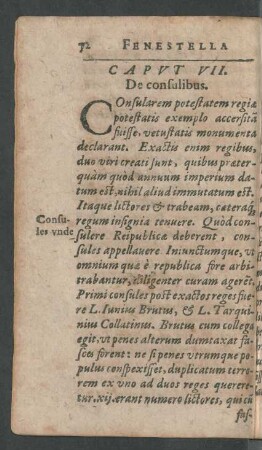 72 FENESTELLA
CAPVT VII.
De consulibus.
COnsularem potestatem regiæ
potestatis exemplo accersitã
fuisse, vetustatis monumenta
declarant. Exactis enim regibus,
duo viri creati sunt, quibus præter-
quàm quòd annuum imperium da-
tum est, nihil aliud immutatum est.
Itaque lictores & trabeam, cateraq;
Consu-
les vnde
regum insignia tenuere. Quòd con-
sulere Reipublicæ deberent, con-
sules appellauere. Iniunctumque, vt
omnium quæ è republica fore arbi-
trabantur, diligenter curam agerēt.
Primi consules post exactos reges fue-
re L. Iunius Brutus, & L. Tarqui-
nius Collatinus. Brutus cum collega
egit, vt penes alterum dumtaxat fa-
sces forent: ne si penes vtrumque po-
pulus conspexisset, duplicatum terro-
rem ex vno ad duos reges querere-
tur. xij. erant numero lictores, qui cũ
fas-